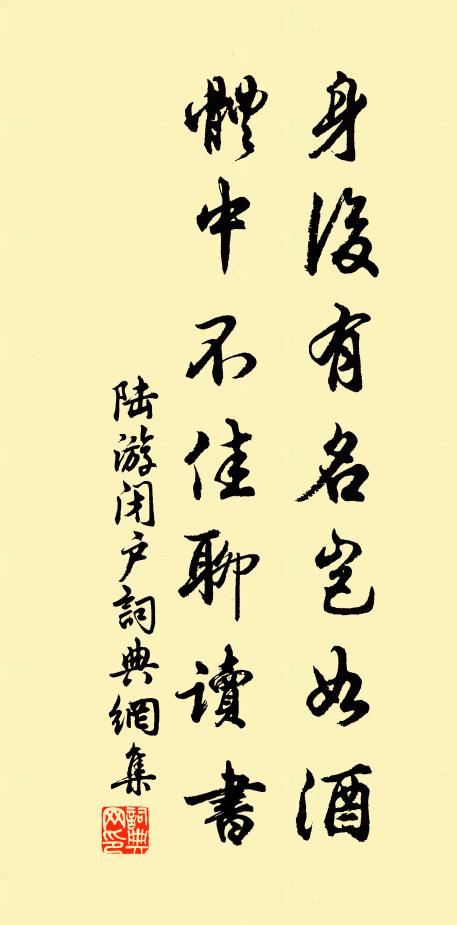 身後有名豈如酒
體中不佳聊讀書
陆游闭户詞典網集
詞典網印